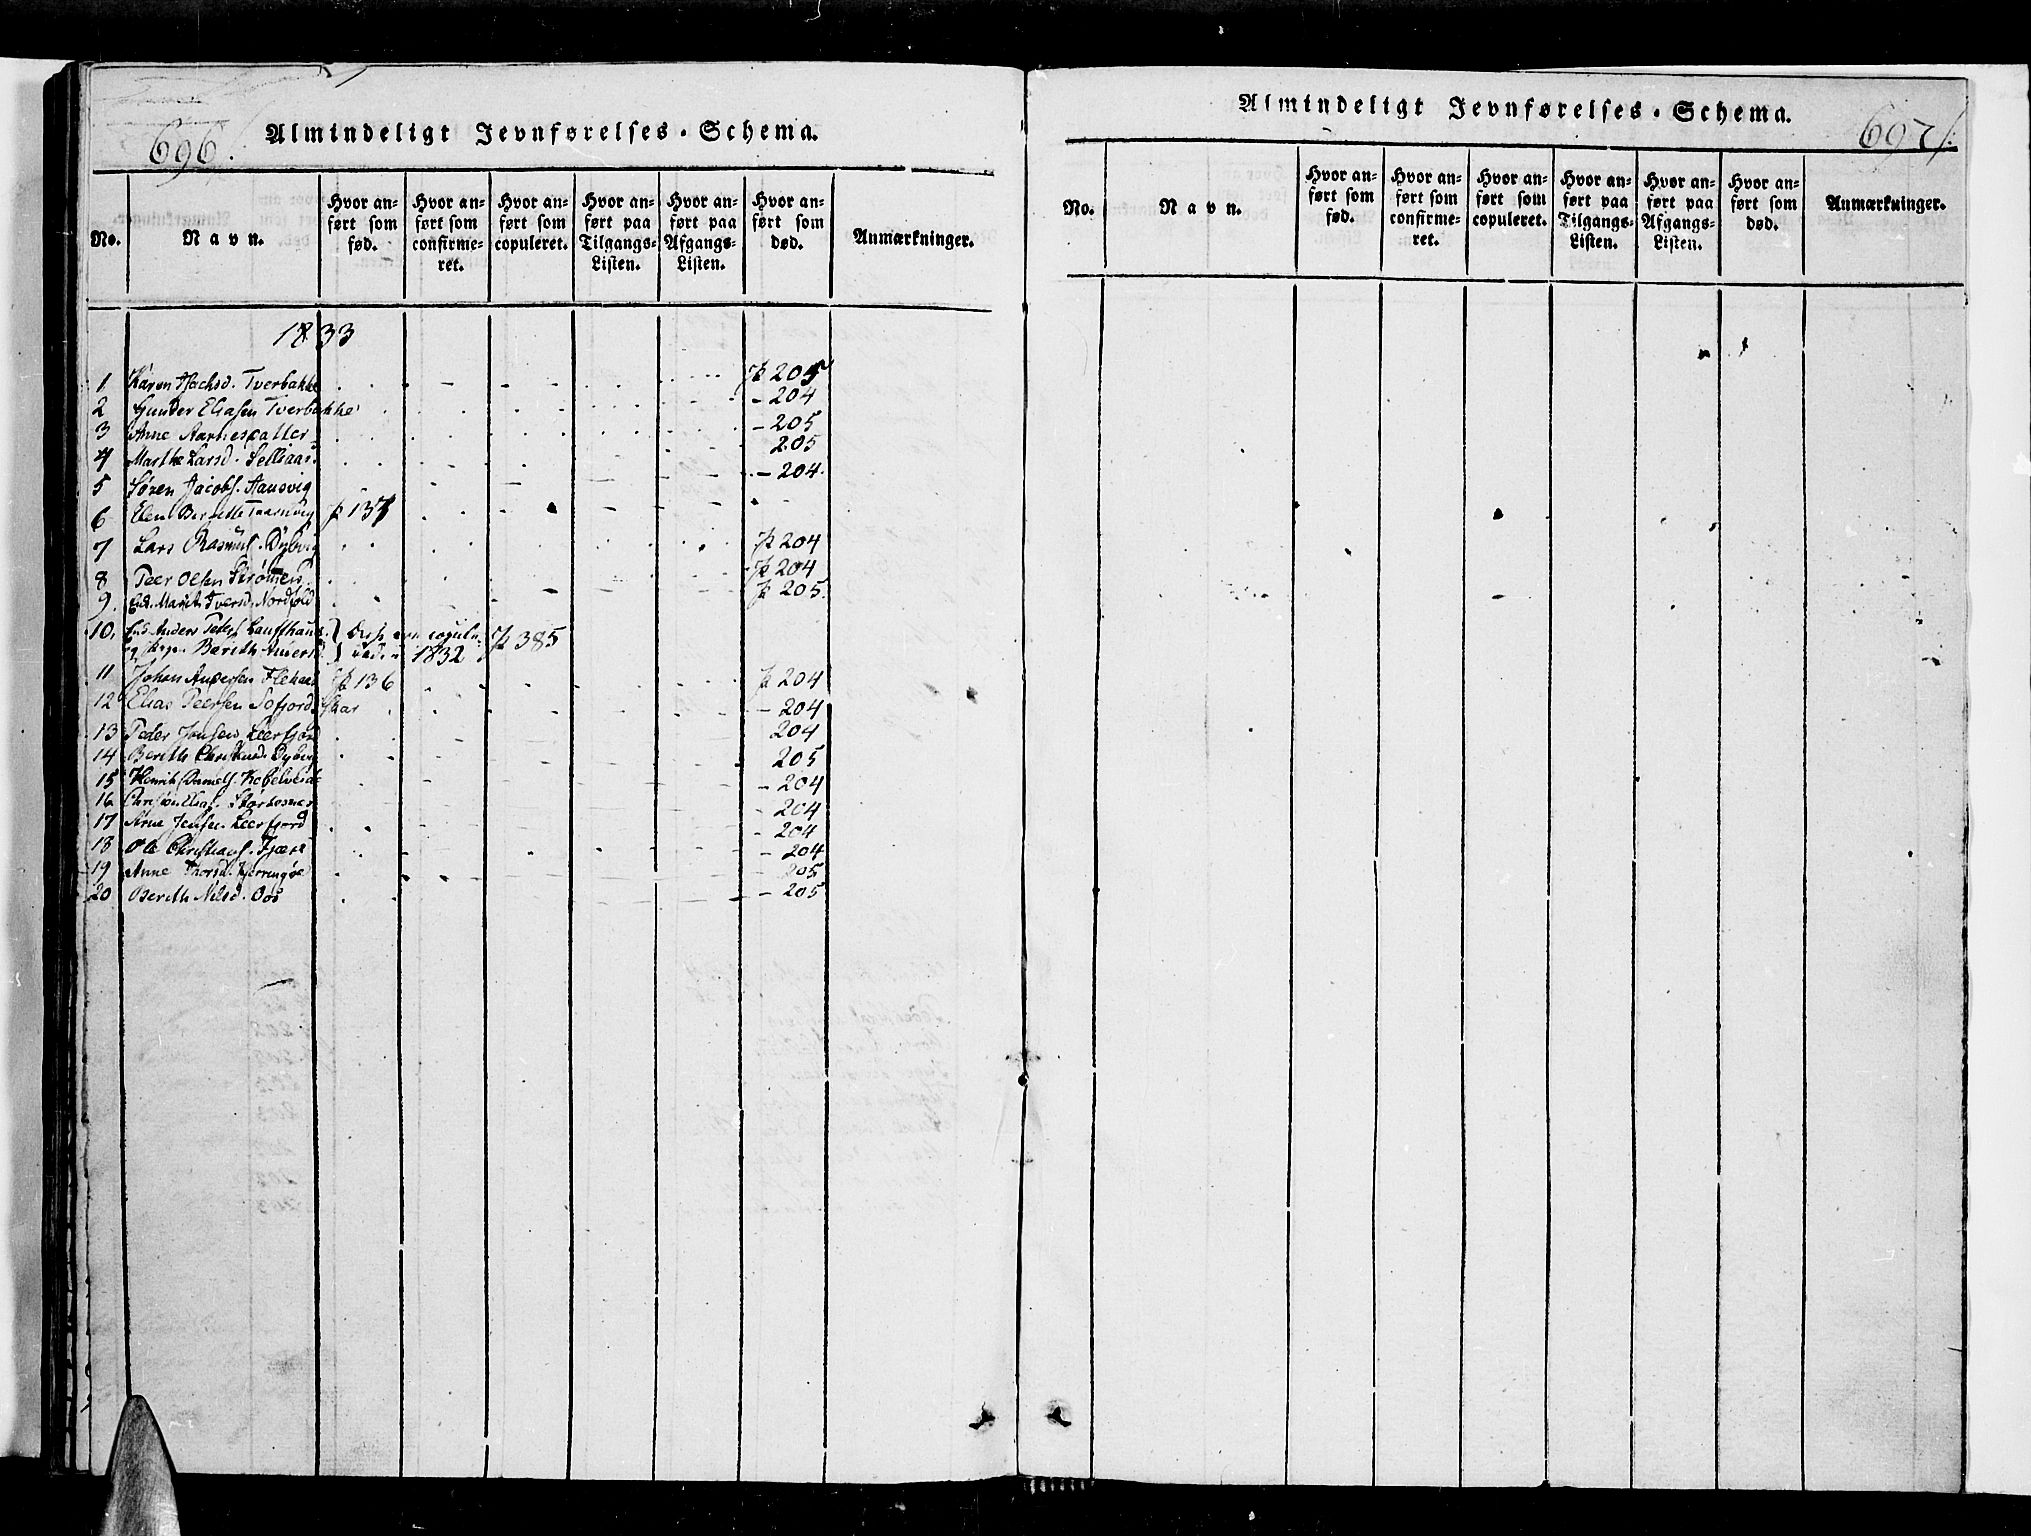 696.
Almindeligt Jevnførelses-Schema.
No.
Navn.
Hvor anført som fød.
Hvor anført som confirmeret.
Hvor anført som copuleret.
Hvor anført paa Tilgangs-Listen.
Hvor anført paa Afgangs-Listen.
Hvor anført som død.
Anmærkninger.
1833
1 Karen Tverbakke 205
2 Gunder Eliasen Tverbakke - 204
3 Anne - 205
4 Marthe Larsd. Selliaas 205
5 Sören Jacobs. - 204
6 Elen 137
7 Lars Rasmus. Dybvig 204
8 Peer Olsen Strömen 204
9. Marit Iversd. Nordfold 205.
10. Anders copul. 1832 385
11 Johan Andersen 136 204
12 Elias Peersen Sofjord skar - 204
13 Peder Jensen Leerfjord 204
14 Berith Dybvig 205
15 Henrik Daniels. Kobelveid - 204
16 Elias. - 204
17 Arne Jensen Leerfjord - 204
18 Ole Christians. Fjære - 204
19 Anne Thorsd. Kjerringöe 205
20 Berith Nilsd. - 205
Almindeligt Jevnførelses-Schema.
697
No.
Navn.
Hvor anført som fød.
Hvor anført som confirmeret.
Hvor anført som copuleret.
Hvor anført paa Tilgangs-Listen.
Hvor anført paa Afgangs-Listen.
Hvor anført som død.
Anmærkninger.